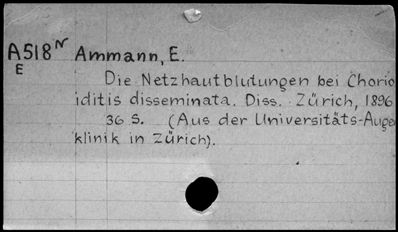 A518ᴺ Ammann, E.
E
Die Netzhautblutungen bei Chorio
iditis disseminata. Diss. Zürich, 1896
36 S. (Aus der Universitäts-Auge
klinik in Zürich).